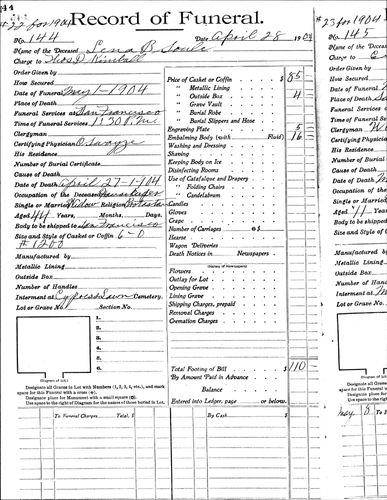 44
#22 for 1904
Record of Funeral.
No. 144
Date April 28 1904
Name of the Deceased Lena B Soule
Charge to Theo. D. Kimball
Order Given by
How Secured
Date of Funeral May 1-1904
Place of Death
Funeral Services at San Francisco
Time of Funeral Services 1 30 P.M.
Clergyman
Certifying Physician O Savage
His Residence
Number of Burial Certificate
Cause of Death
Date of Death April 27-1904
Occupation of the Deceased Housekeeper
Single or Married Widow Religion Protestant
Aged 44 Years, Months, Days.
Body to be shipped to San Francisco
Size and Style of Casket or Coffin 6-0
#1200
Manufactured by
Metallic Lining
Outside Box
Number of Handles
Interment at Cypress Lawn Cemetery.
Lot or Grave No. Section No.
1.
2.
3.
4.
5.
6.
(Diagram of Lot.)
Designate all Graves in Lot with Numbers (1, 2, 3, 4, etc.), and mark
space for this Funeral with a cross (+).
Designate place for Monument with a small square (□).
Use space to the right of Diagram for the names of those buried in Lot.
Price of Casket or Coffin $ 85
" Metallic Lining
" Outside Box 4
" Grave Vault
" Burial Robe
" Burial Slippers and Hose
Engraving Plate 5
Embalming Body (with Fluid) 16
Washing and Dressing
Shaving
Keeping Body on Ice
Disinfecting Rooms
Use of Catafalque and Drapery
" Folding Chairs
" Candelabrum
Candles
Gloves
Crape
Number of Carriages @ $
Hearse
Wagon Deliveries
Death Notices in Newspapers
(Names of Newspapers)
Flowers
Outlay for Lot
Opening Grave
Lining Grave
Shipping Charges, prepaid
Removal Charges
Cremation Charges
Total Footing of Bill $ 110
By Amount Paid in Advance
Balance
Entered into Ledger, page or below.
To Funeral Charges Total, $
By Cash $
#23 for 1904
No. 145
Name of the Deceased
Charge to
Order Given by
How Secured
Date of Funeral
Place of Death
Funeral Services
Time of Funeral
Clergyman
Certifying Physician
His Residence
Number of Burial
Cause of Death
Date of Death
Occupation of the
Single or Married
Aged 41 Years,
Body to be shipped
Size and Style of
Manufactured by
Metallic Lining
Outside Box
Number of Handles
Interment at
Lot or Grave No.
(Diagram of Lot.)
Designate all Graves
space for this Funeral
Designate place for
Use space to the right
To Funeral
May 8